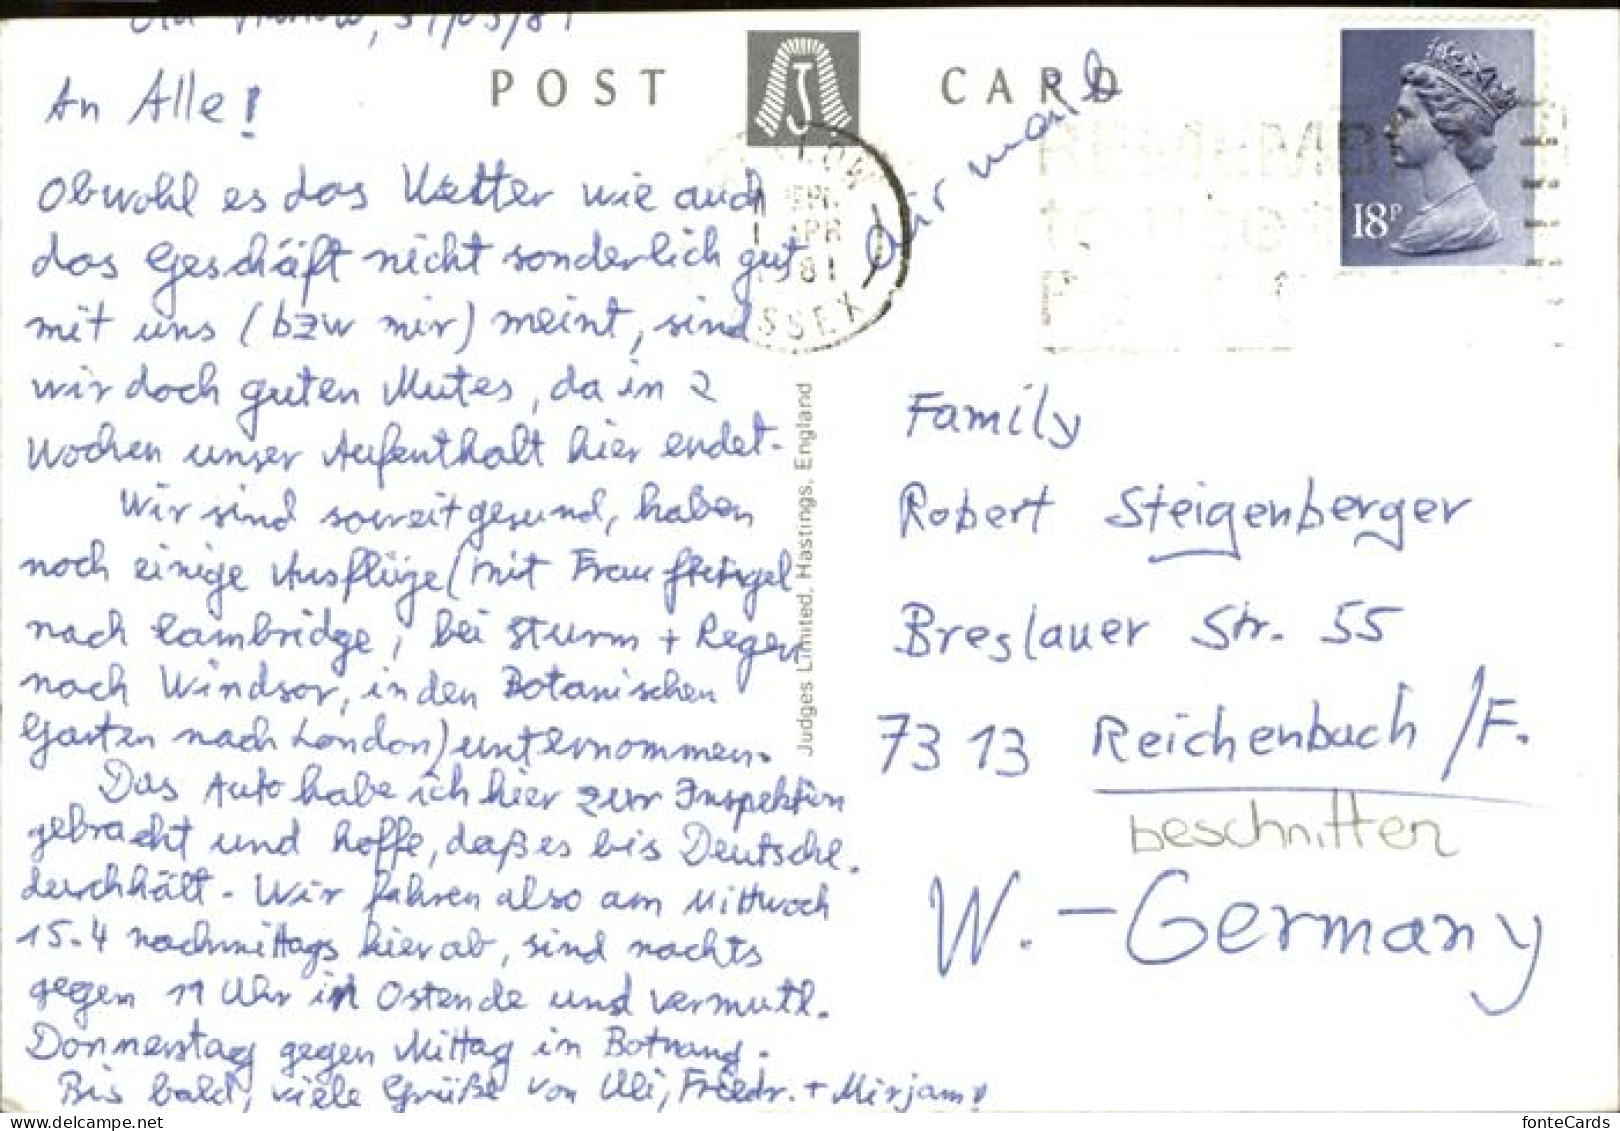 Old Harlow, 31/03/81
An Alle!
Obwohl es das Wetter wie auch
das Geschäft nicht sonderlich gut
mit uns (bzw mir) meint, sind
wir doch guten Mutes, da in 2
Wochen unser Aufenthalt hier endet.
Wir sind soweit gesund, haben
noch einige Ausflüge (mit Frau
nach Cambridge, bei Sturm + Regen
nach Windsor, in den Botanischen
Garten nach London) unternommen.
Das Auto habe ich hier zur Inspektion
gebracht und hoffe, daß es bis Deutschl.
durchhält. Wir fahren also am Mittwoch
15.4 nachmittags hier ab, sind nachts
gegen 11 Uhr in Ostende und vermutl.
Donnerstag gegen Mittag in Botnang.
Bis bald, viele Grüße von Uli, Friedr. + Mirjam!
POST CARD
J
air mail
HARLOW
APR
81
ESSEX
REMEMBER
18P
Judges Limited, Hastings, England
Family
Robert Steigenberger
Breslauer Str. 55
7313 Reichenbach/F.
beschnitten
W.-Germany
fonteCards